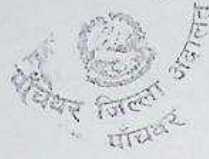 पाँचथर जिल्ला अदालत
पाँचथर